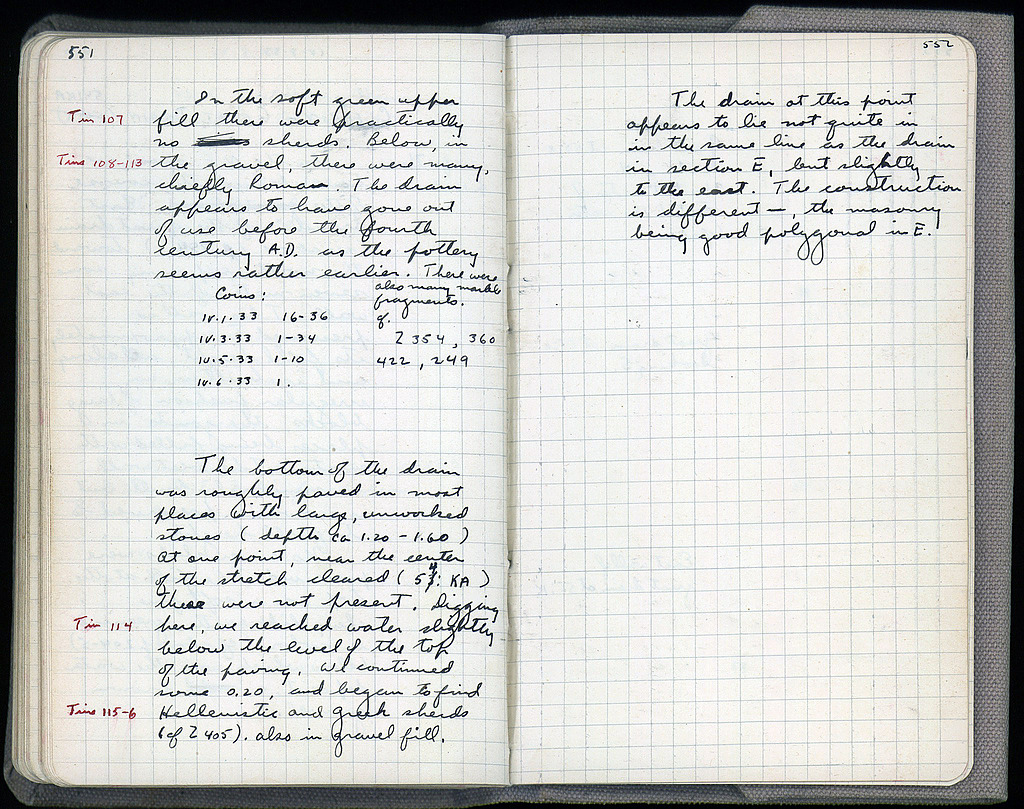 551
In the soft green upper
Tin 107 fill there were practically
no sherds. Below, in
Tins 108-113 the gravel, there were many,
chiefly Roman. The drain
appears to have gone out
of use before the fourth
century A.D. as the pottery
seems rather earlier. There were
also many marble
fragments.
Coins:
IV.1.33 16-36 cf.
IV.3.33 1-34 Σ 354, 360
IV.5.33 1-10 422, 249
IV.6.33 1.
The bottom of the drain
was roughly paved in most
places with large, unworked
stones (depth ca 1.20 - 1.60)
At one point, near the center
of the stretch cleared (54: KA)
these were not present. Digging
Tin 114 here, we reached water slightly
below the level of the top
of the paving. We continued
some 0.20, and began to find
Tins 115-6 Hellenistic and greek sherds
(cf Σ 405). also in gravel fill.
552
The drain at this point
appears to lie not quite in
in the same line as the drain
in section E, but slightly
to the east. The construction
is different —, the masonry
being good polygonal in E.